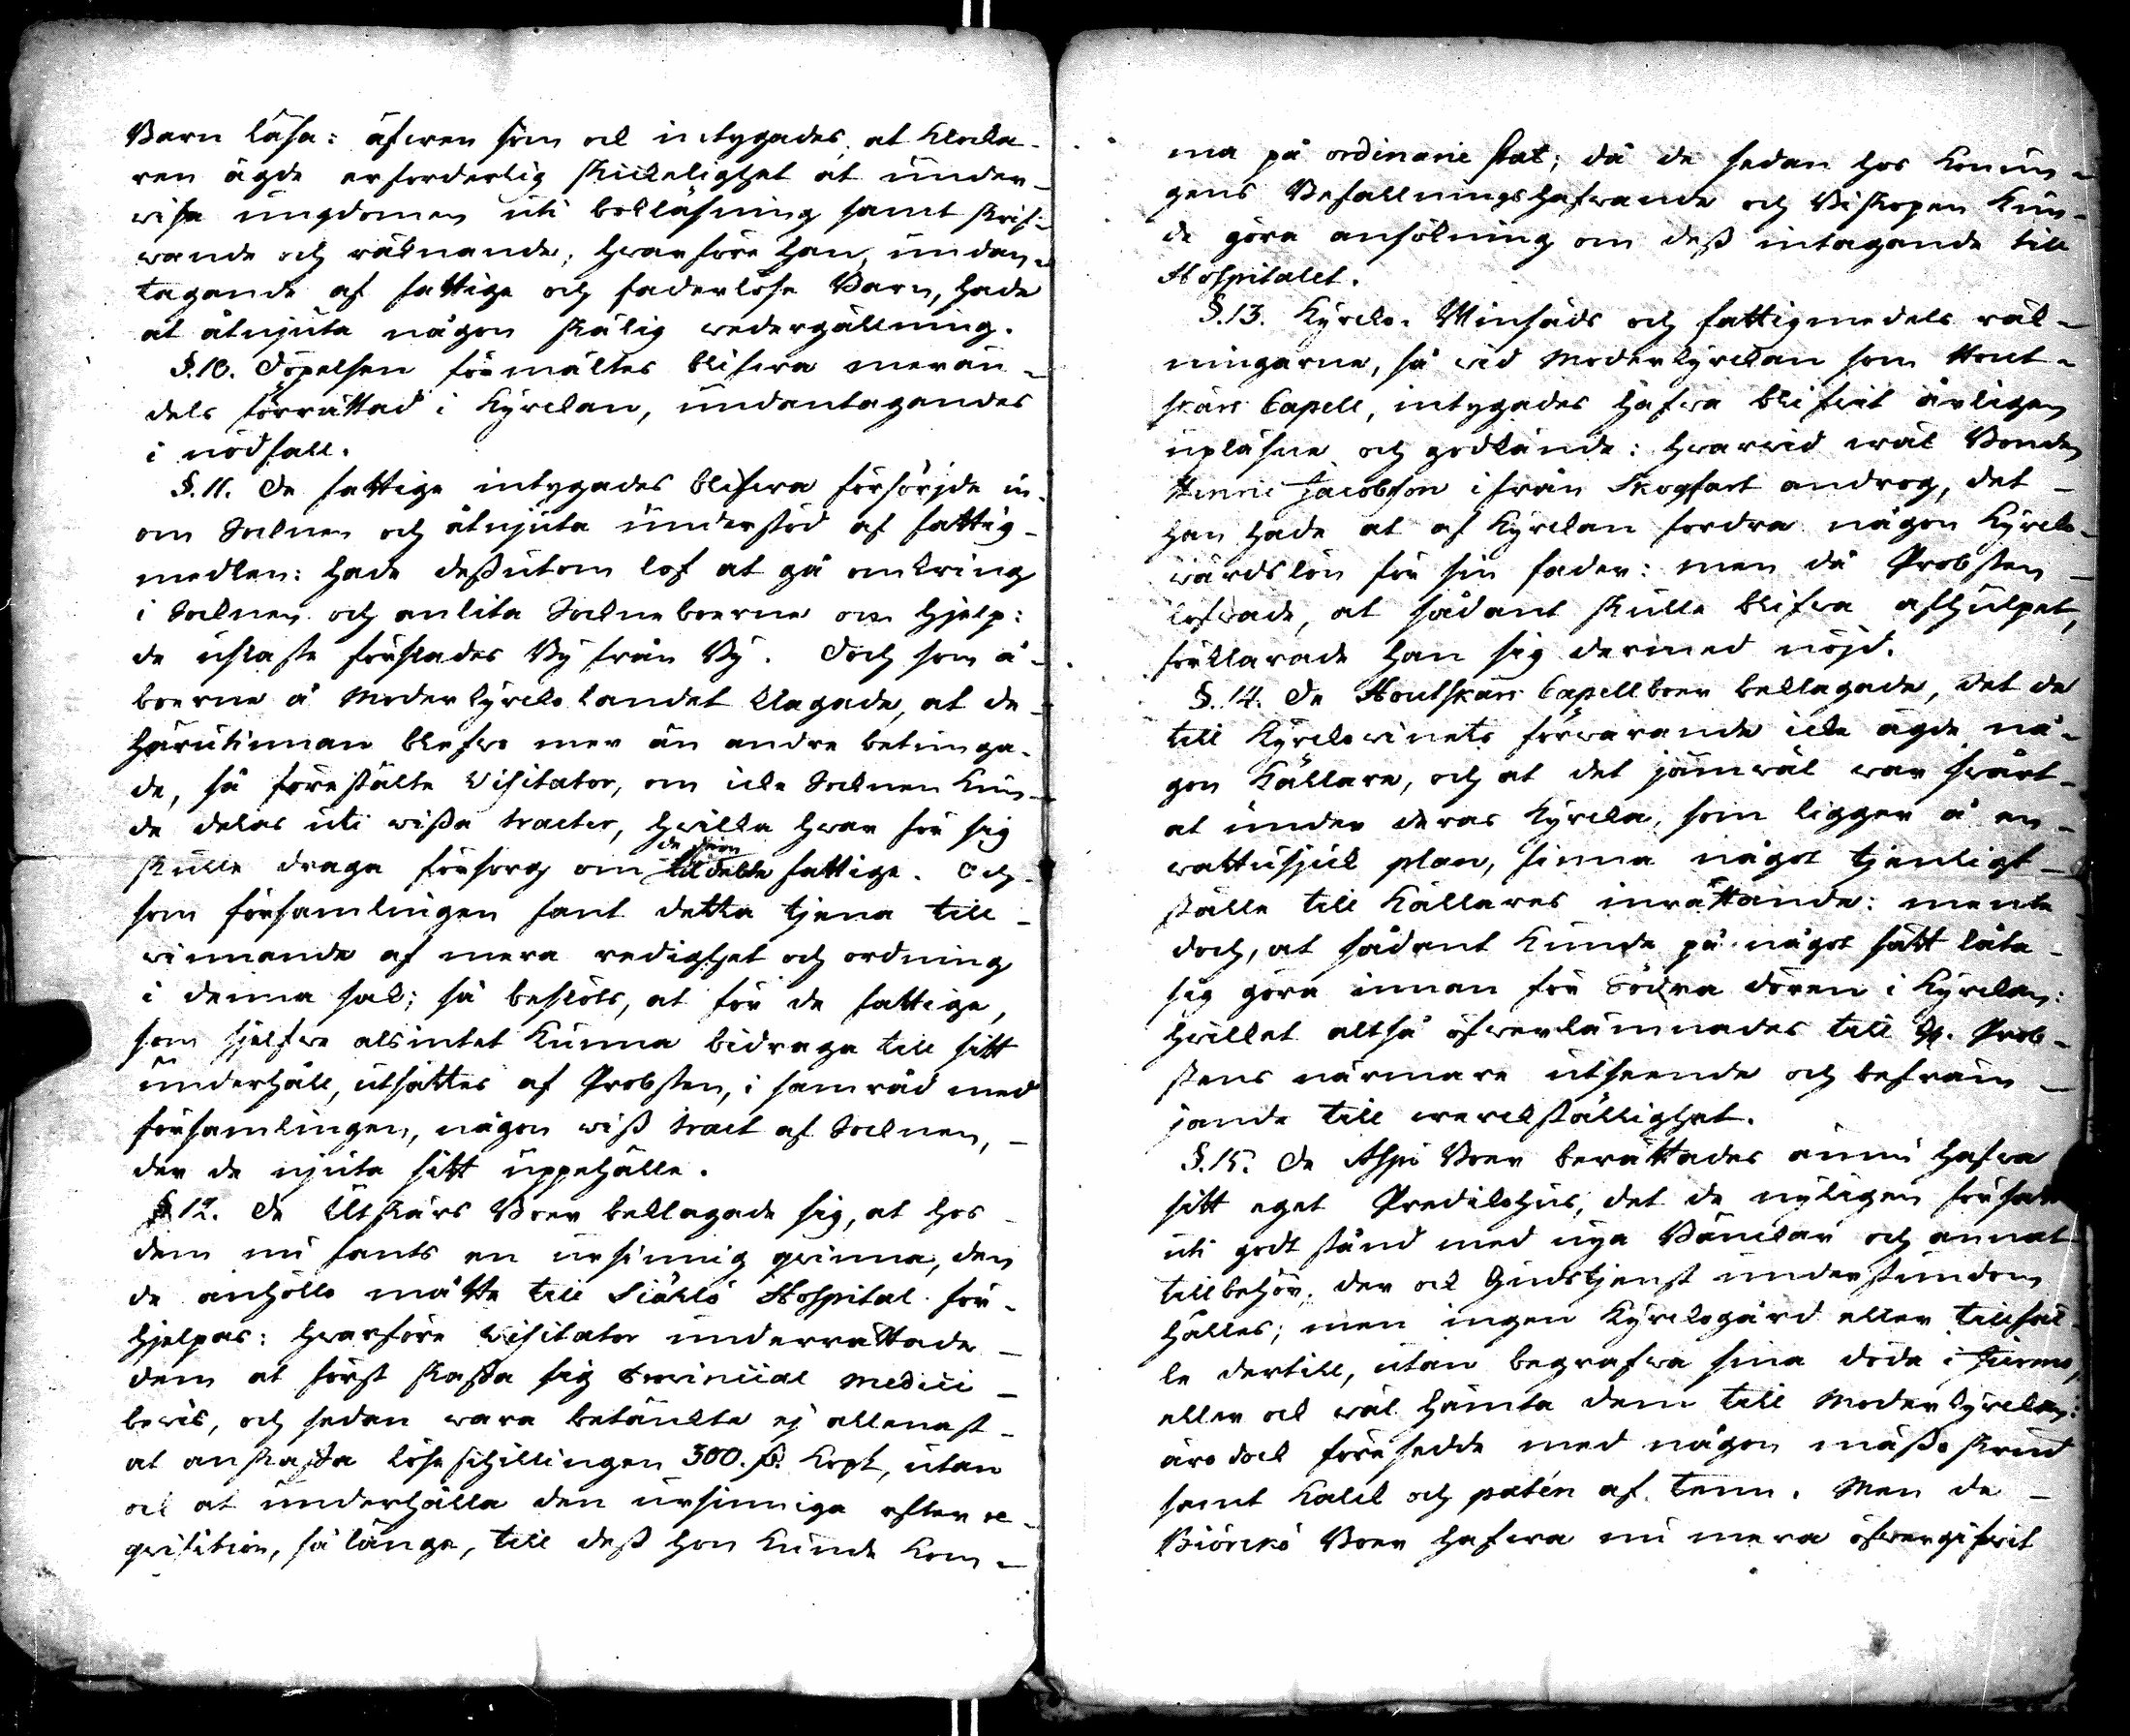 Barn läsa: äfwen som ock intygades, at Klocka-
ren ägde erforderlig skickelighet at under-
wisa ungdomen uti bokläsning samt skrif-
wande och räknande; hwarföre han, undan-
tagande af fattige och faderlöse Barn, hade
at åtnjuta någon skälig wedergällning.
§. 10. Döpelsen förmältes blifwa merän-
dels förrättad i Kyrckan, undantagandes
i nödfall.
§. 11. De fattige intygades blifwa försörjde in-
om Socknen och åtnjuta understöd af fattig-
medlen: hade dessutom lof at gå omkring
i Socknen och anlita Sockneboerne om hjelp:
de uslaste förskades By från By. Doch som å-
boerne å Moderkyrcko landet klagade, at de
härutinnan blefwo mer än andre betunga-
de, så förestälte Visitator, om icke Socknen kun-
de delas uti wissa tracter, hwilka hwar för sig
skulle draga försorg om de dem tildelte fattige. Och
som församlingen fant detta tjena till
winnande af mera redighet och ordning
i denna sak; så beslöts, at för de fattige,
som sjelfwe alsintet kunna bidraga till sitt
underhåll, utsättes af Probsten, i samråd med
församlingen, någon wiss tract af Socknen,
der de njuta sitt uppehälle.
§ 12. De Utskärs Boer beklagade sig, at hos
dem nu fants en ursinnig qwinna, den
de anhöllo måtte till Siählö Hospital för-
hjelpas: hwarföre Visitator underrättade
dem at först skaffa sig Provincial Medici
bewis, och sedan wara betänckte ej allenast
at anskaffa löseschillingen 300. D. Kopt, utan
ock at underhålla den ursinniga efter re-
qvisition, så länge, till dess hon kunde kom-
ma på ordinarie stat; då de sedan hos Konun-
gens Befallningshafwande och Biskopen kun-
de göra ansökning om dess intagande till
Hospitalet.
§. 13. Kyrcko- Winsäds och fattigmedels räk-
ningarne, så wid Moderkyrckan som Hout-
skärs Capell, intygades hafwa blifwit årligen
upläsne och godkände: hwarwid wäl Bonden
Henric Jacobsson ifrån Skogfart androg, det
han hade at af Kyrckan fordra någon Kyrcko-
wärdslön för sin fader: men då Probsten
lofwade, at sådant skulle blifwa afhulpet,
förklarade han sig dermed nöjd.
§. 14. De Houtskärs Capellboer beklagade, det de
till Kyrckowinets förwarande icke ägde nå-
gon Källare, och at det jämwäl war swårt
at under deras Kyrcka, som ligger å en
wattusjuk plan, finna något tjenligt
ställe till Källares inrättande: mente
doch, at sådant kunde på något sätt låta
sig göra innan för Södra dören i Kyrckan:
hwilket altså öfwerlämnades till H. Prob-
stens närmare utseende och befräm-
jande till werckställighet.
§. 15. De Aspö Boer berättades ännu hafwa
sitt eget Predikohus, det de nyligen försatt
uti godt stånd med nya Bänckar och annat
tillbehör, der ock Gudstjenst understundom
hålles; men ingen Kyrckogård eller tillfäl-
le dertill, utan begrafwa sina döda i Jurmo,
eller ock wäl hämta dem till Moderkyrckan:
äro dock försedde med någon mässoskrud
samt kalck och patén af tenn. Men de
Biörckö Boer hafwa nu mera öfwergifwit